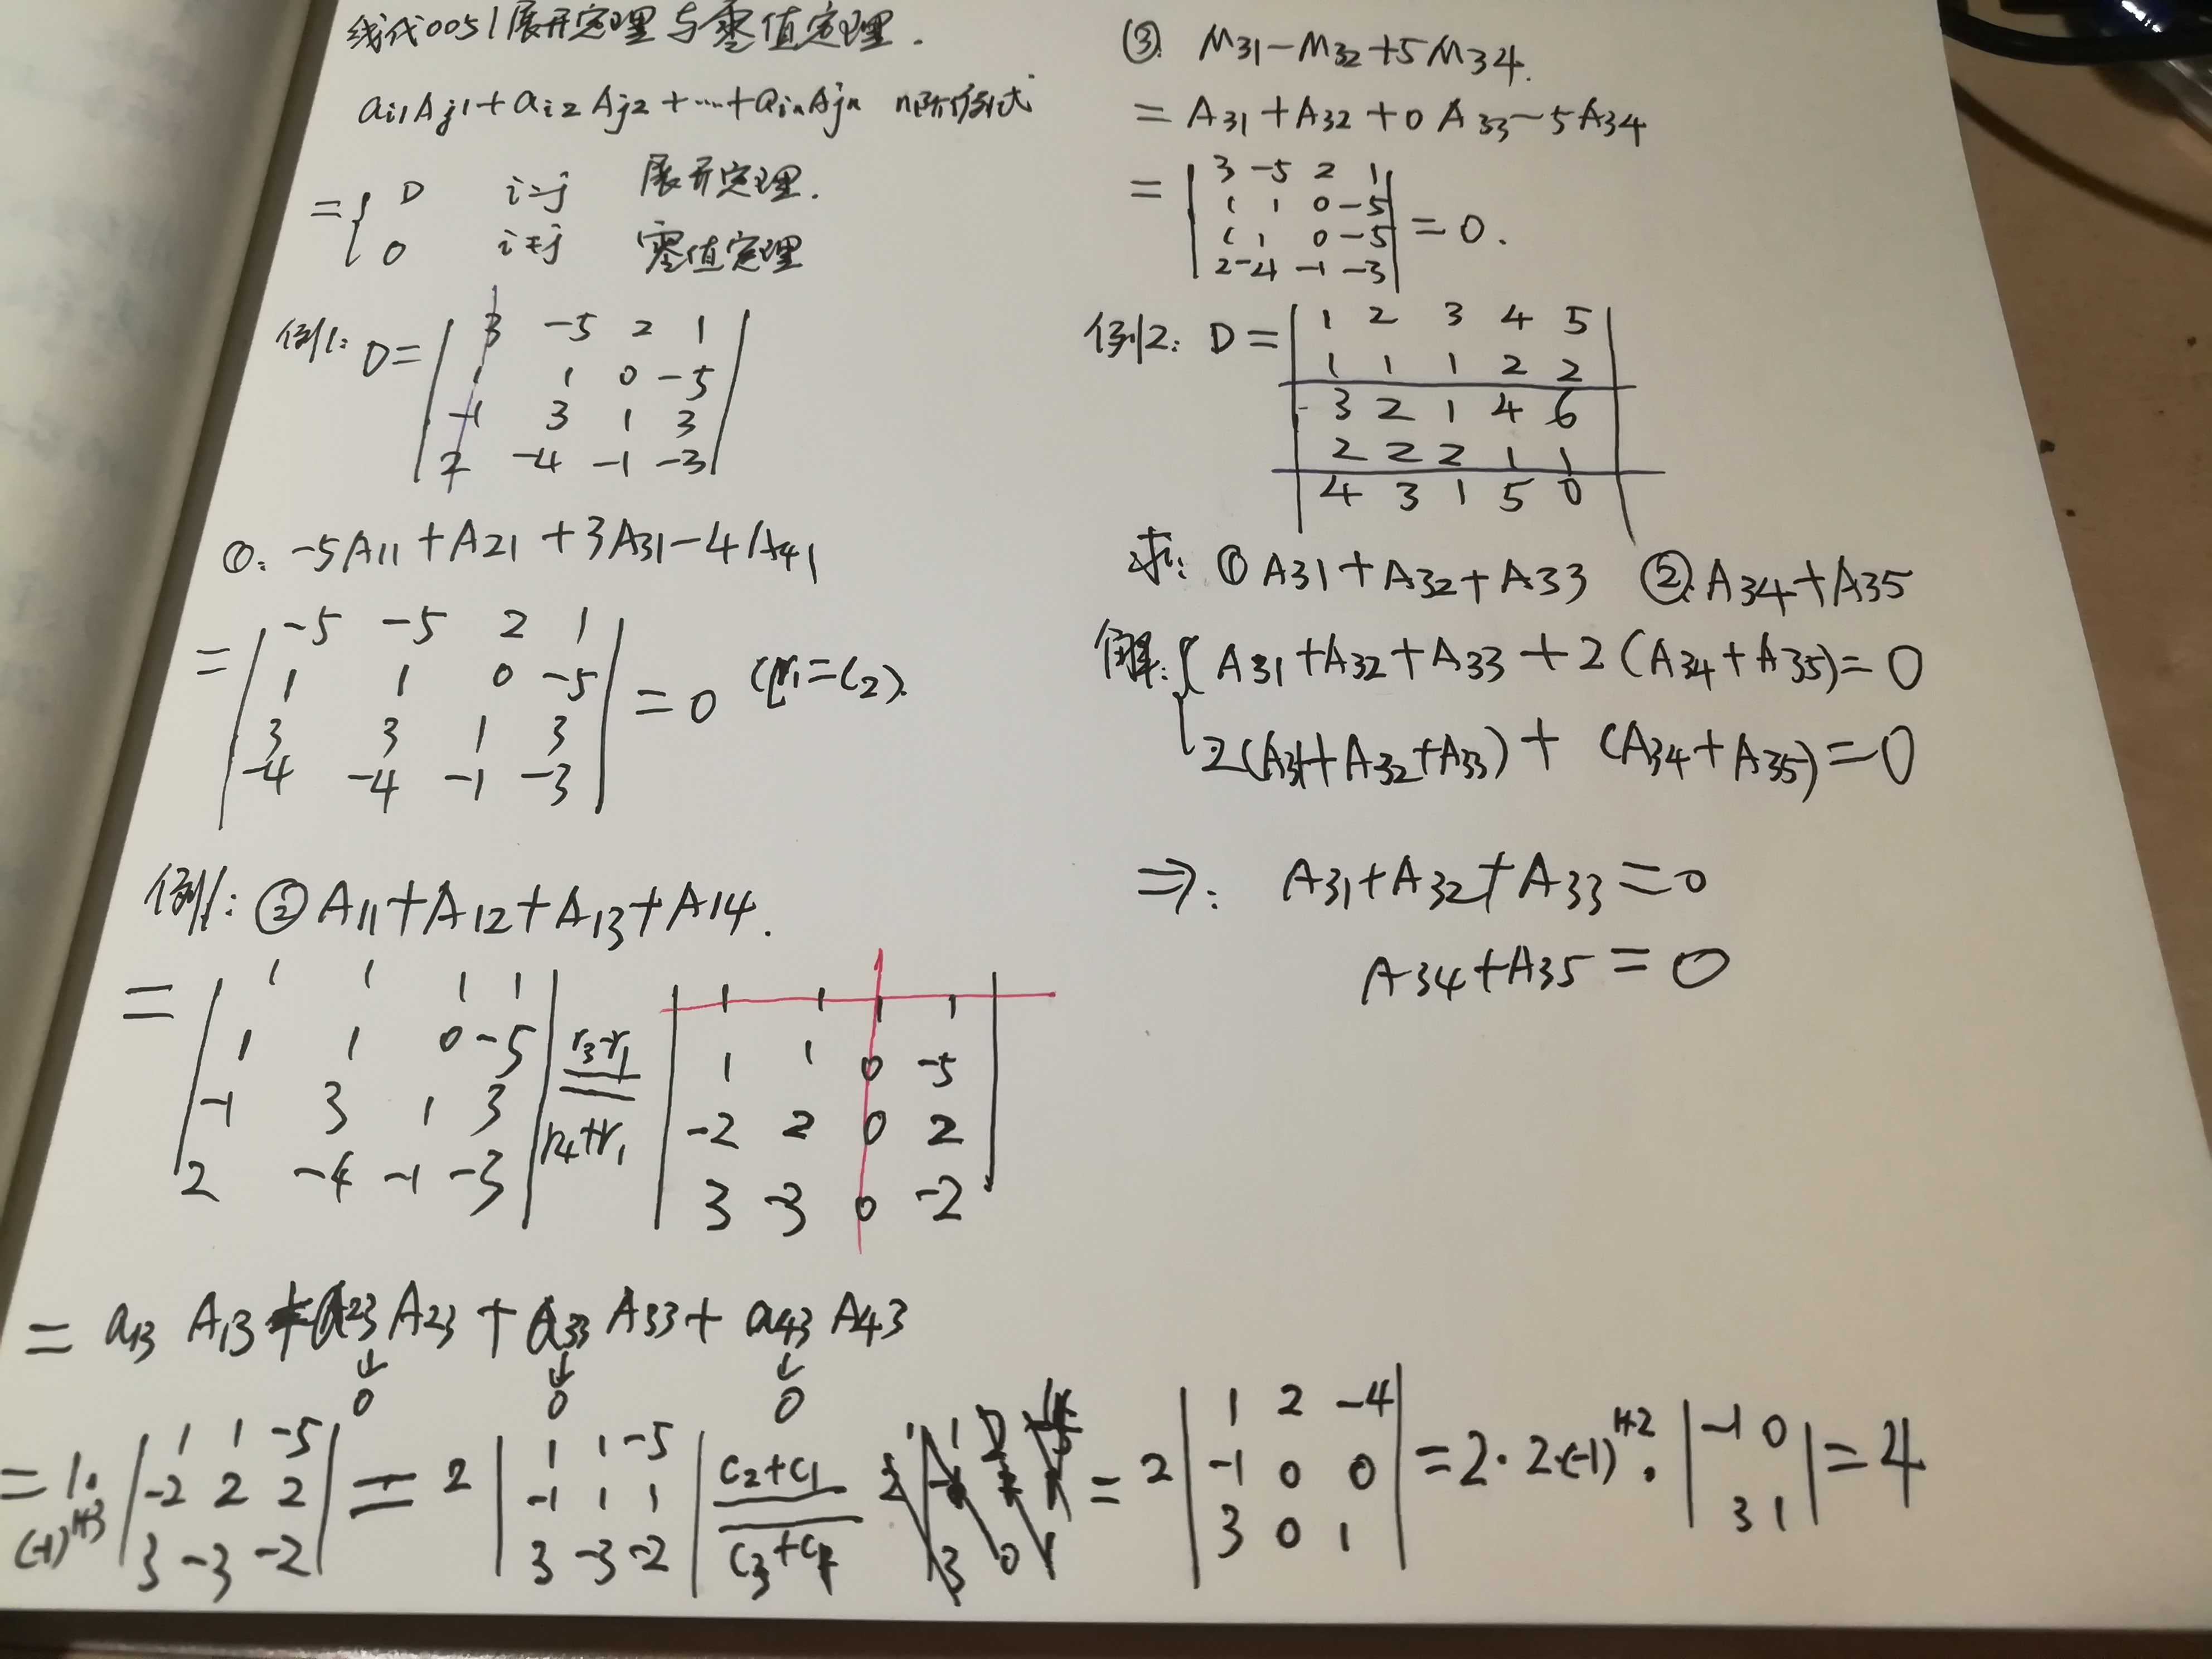 线代0051展开定理与零值定理.
ai1Aj1+ai2Aj2+…+ainAjn n阶行列式
={ D i=j 展开定理.
0 i≠j 零值定理
例1: D=
3 -5 2 1
1 1 0 -5
-1 3 1 3
2 -4 -1 -3
①. -5A11+A21+3A31-4A41
=
-5 -5 2 1
1 1 0 -5
3 3 1 3
-4 -4 -1 -3
=0 (c1=c2).
例1: ② A11+A12+A13+A14.
=
1 1 1 1
1 1 0 -5
-1 3 1 3
2 -4 -1 -3
r3-r1
r4+r1
1 1 1 1
1 1 0 -5
-2 2 0 2
3 -3 0 -2
= a13 A13+a23 A23+a33 A33+a43 A43
↓ ↓ ↓
0 0 0
=1.(-1)^1+3
1 1 -5
-2 2 2
3 -3 -2
= 2
1 1 -5
-1 1 1
3 -3 -2
c2+c1
c3+c1
= 2
1 2 -4
-1 0 0
3 0 1
=2·2·(-1)^1+2·
-1 0
3 1
=4
③. M31-M32+5M34.
= A31+A32+0A33-5A34
=
3 -5 2 1
1 1 0 -5
1 1 0 -5
2 -4 -1 -3
=0.
例2: D=
1 2 3 4 5
1 1 1 2 2
3 2 1 4 6
2 2 2 1 1
4 3 1 5 0
求: ① A31+A32+A33 ② A34+A35
解: { A31+A32+A33+2(A34+A35)=0
2(A31+A32+A33)+(A34+A35)=0
⇒: A31+A32+A33=0
A34+A35=0